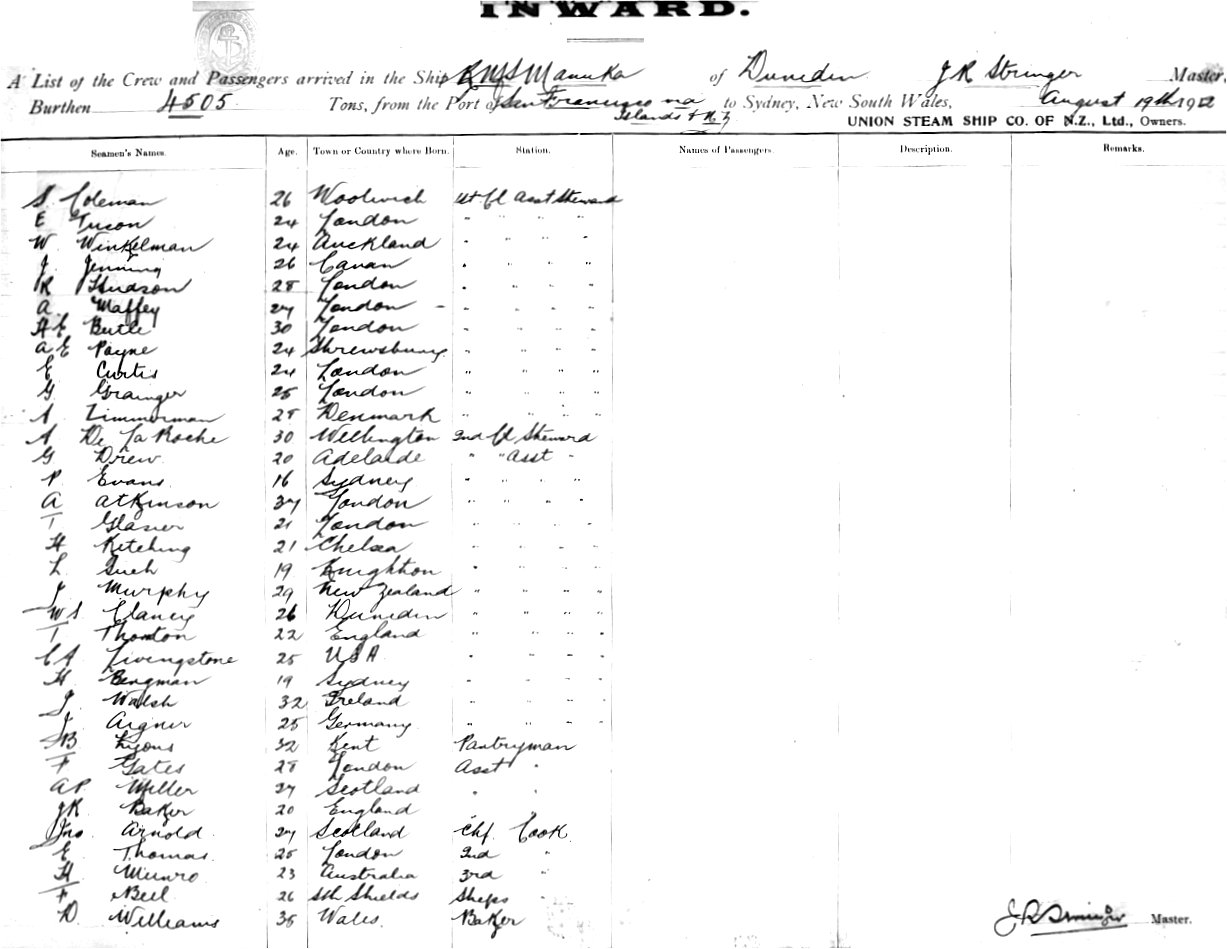 INWARD.
A List of the Crew and Passengers arrived in the Ship RMS Manuka of Dunedin J R Stringer Master,
Burthen 4505 Tons, from the Port of San Francisco via Islands & N.Z. to Sydney, New South Wales, August 19th 1912
UNION STEAM SHIP CO. OF N.Z., Ltd., Owners.
Seamen's Names. Age. Town or Country where Born. Station. Names of Passengers. Description. Remarks.
S. Coleman 26 Woolwich 1st Cl Asst Steward
E Tuson 24 London " " " "
W. Winkelman 24 Auckland " " " "
J. Jenning 26 Cavan " " " "
R Hudson 28 London " " " "
A. Maffey 27 London " " " "
H E Butle 30 London " " " "
A E Payne 24 Shrewsbury " " " "
E Curtis 24 London " " " "
G. Grainger 25 London " " " "
A Zimmerman 28 Denmark " " " "
A De La Roche 30 Wellington 2nd Cl Steward
G Drew 20 Adelaide " " Asst "
P. Evans 16 Sydney " " " "
A Atkinson 37 London " " " "
T Glasier 21 London " " " "
H Ketching 21 Chelsea " " " "
L. Such 19 Knighton " " " "
J Murphy 29 New Zealand " " " "
W S Clancy 26 Dunedin " " " "
T Thornton 22 England " " " "
C A Livingstone 25 USA " " " "
H Bergman 19 Sydney " " " "
J Walsh 32 Ireland " " " "
J. Aigner 25 Germany " " " "
B Lyons 32 Kent Pantryman
F Gates 28 London Asst "
A P. Miller 27 Scotland " "
J K Baker 20 England
Jno. Arnold 27 Scotland Chf. Cook
E Thomas 25 London 2nd "
H Munro 23 Australia 3rd "
F Bell 26 Sth Shields Ships
D. Williams 35 Wales. Baker
J R Stringer Master.